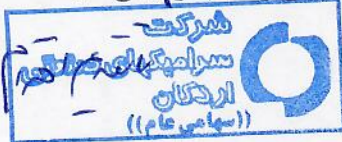 شرکت
سرامیکهای صنعتی
اردکان
((سهامی عام))